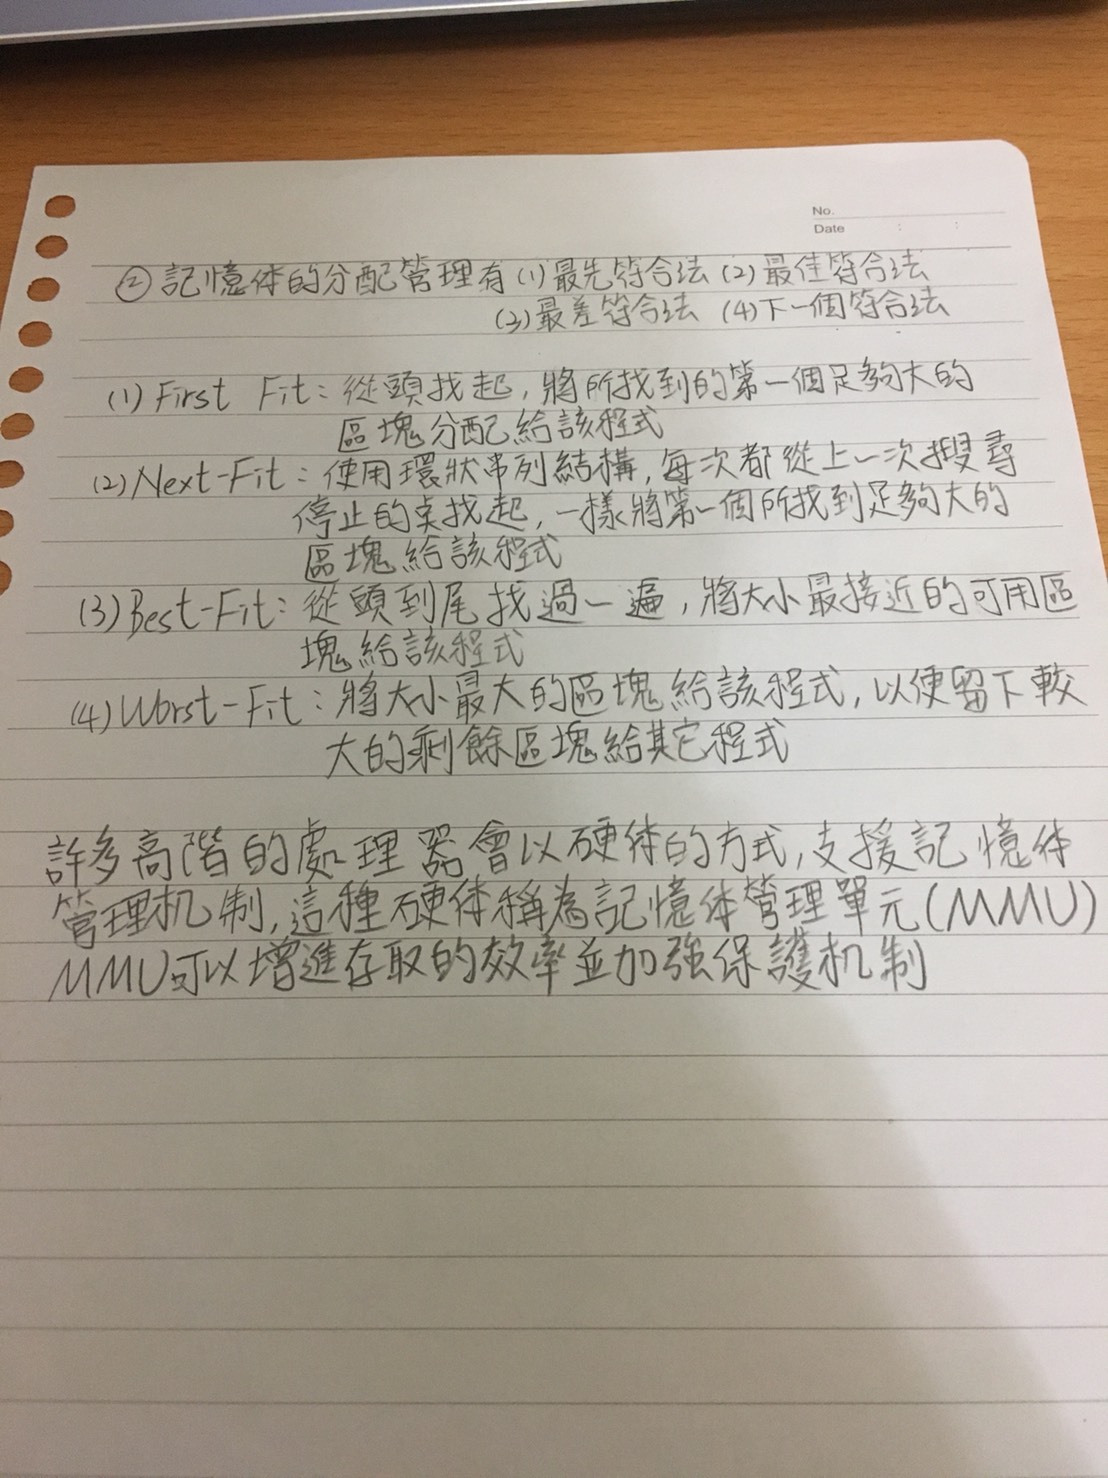 No.
Date : :
②記憶体的分配管理有(1)最先符合法(2)最佳符合法
(3)最差符合法 (4)下一個符合法
(1)First Fit:從頭找起,將所找到的第一個足夠大的
區塊分配給該程式
(2)Next-Fit:使用環狀串列結構,每次都從上一次搜尋
停止的桌找起,一樣將第一個所找到足夠大的
區塊給該程式
(3)Best-Fit:從頭到尾找過一遍,將大小最接近的可用區
塊給該程式
(4)Worst-Fit:將大小最大的區塊給該程式,以便留下較
大的剩餘區塊給其它程式
許多高階的處理器會以硬体的方式,支援記憶体
管理机制,這種硬体稱為記憶体管理單元(MMU)
MMU可以增進存取的效率並加強保護机制